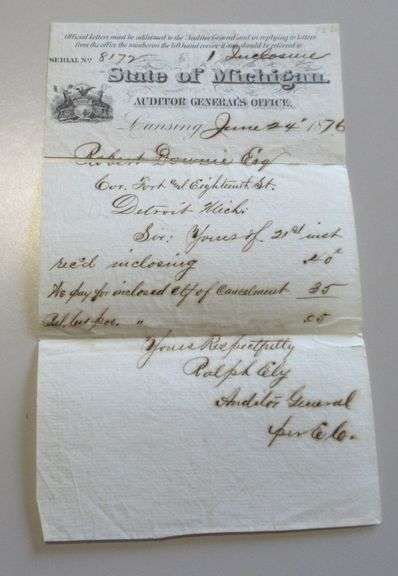 Official letters must be addressed to the Auditor General and in replying to letters
from the office the number on the left hand corner if any should be referred to
SERIAL No 8172 1 Inclosure
State of Michigan.
AUDITOR GENERAL'S OFFICE,
Lansing June 24 1876
Robert Downie Esq
Cor. Fort and Eighteenth St.
Detroit Mich
Sir: Yours of 21st inst
rec'd inclosing
To pay for inclosed ctf of Cancelment 35
05
Yours Respectfully
Ralph Ely
Auditor General
per